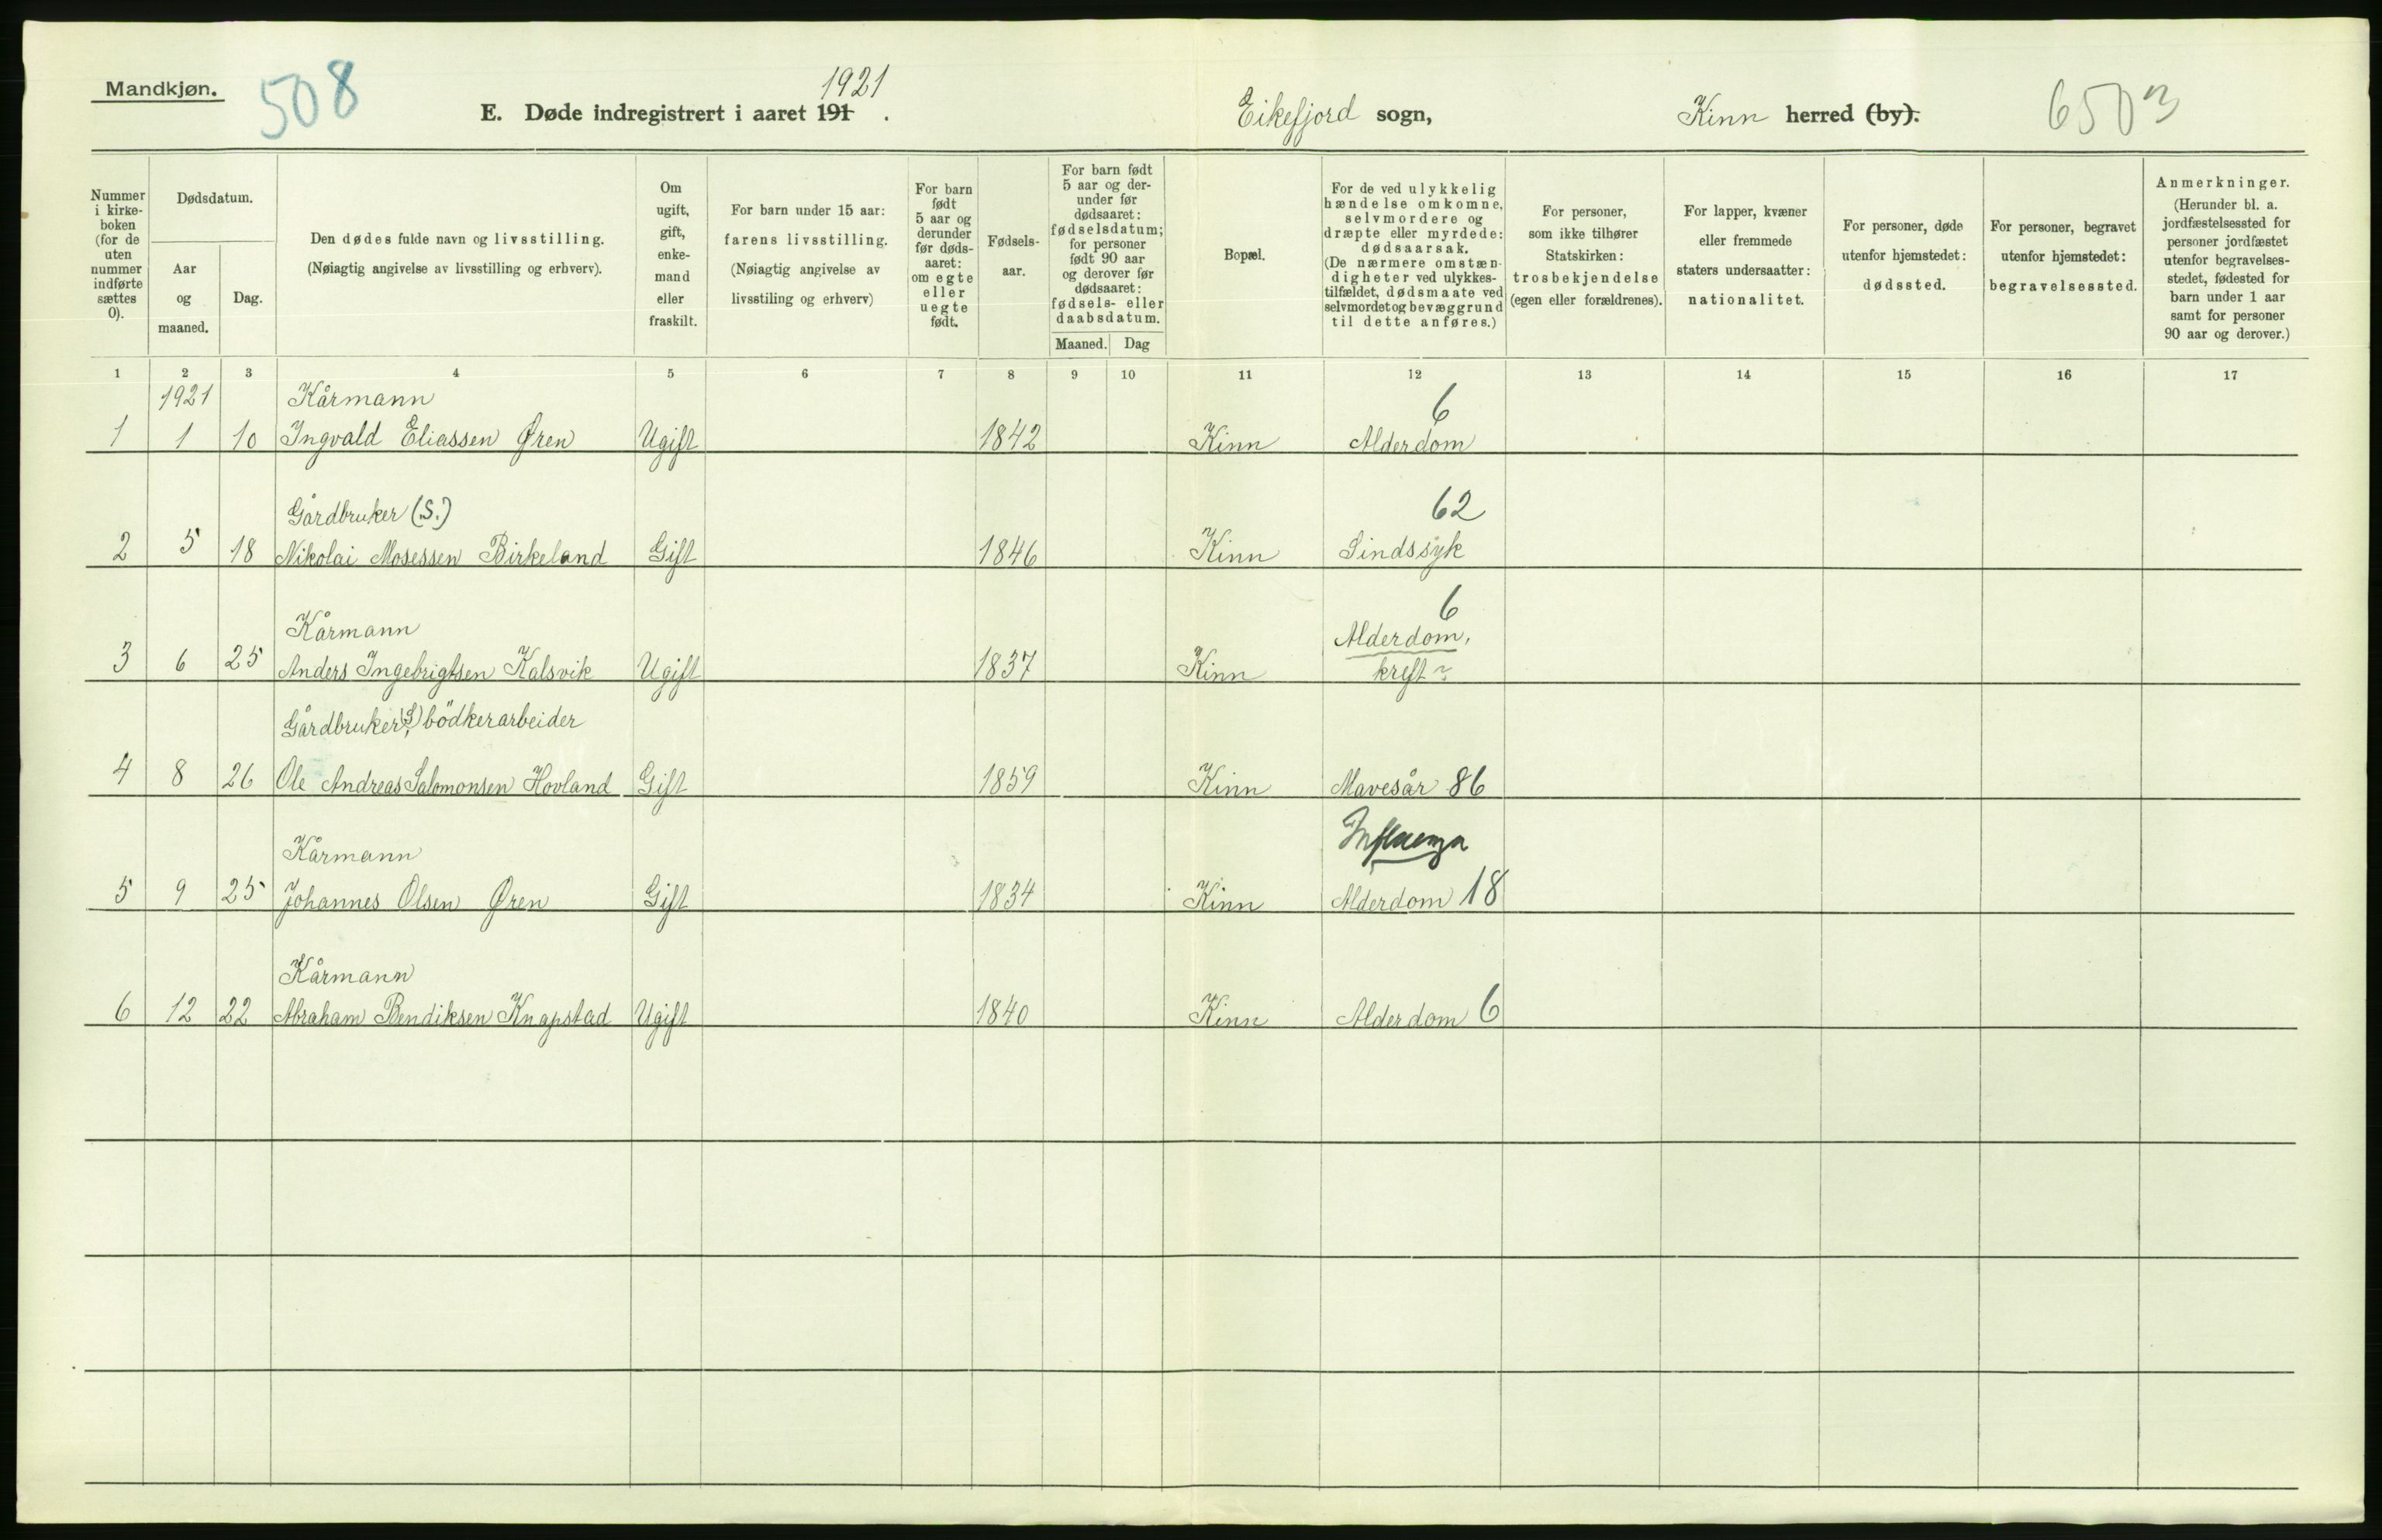 Mandkjøn.
508
E. Døde indregistrert i aaret 191 .
1921
Eikefjord sogn,
Kinn herred (by).
6503
Nummer i kirke-boken (for de uten nummer indførte sættes 0).
Dødsdatum.
Aar og maaned.
Dag.
Den dødes fulde navn og livsstilling.
(Nøiagtig angivelse av livsstilling og erhverv).
Om ugift, gift, enke-mand eller fraskilt.
For barn under 15 aar: farens livsstilling. (Nøiagtig angivelse av livsstiling og erhverv)
For barn født 5 aar og derunder før døds-aaret: om egte eller uegte født.
Fødsels-aar.
For barn født 5 aar og der-under før dødsaaret: fødselsdatum; for personer født 90 aar og derover før dødsaaret: fødsels- eller daabsdatum.
Maaned. Dag
Bopæl.
For de ved ulykkelig hændelse omkomne, selvmordere og dræpte eller myrdede: dødsaarsak. (De nærmere omstæn-digheter ved ulykkes-tilfældet, dødsmaate ved selvmordet og bevæggrund til dette anføres.)
For personer, som ikke tilhører Statskirken: trosbekjendelse (egen eller forældrenes).
For lapper, kvæner eller fremmede staters undersaatter: nationalitet.
For personer, døde utenfor hjemstedet: dødssted.
For personer, begravet utenfor hjemstedet: begravelsessted.
Anmerkninger. (Herunder bl. a. jordfæstelsessted for personer jordfæstet utenfor begravelses-stedet, fødested for barn under 1 aar samt for personer 90 aar og derover.)
1 2 3 4 5 6 7 8 9 10 11 12 13 14 15 16 17
1921 Kårmann 6
1 1 10 Ingvald Eliassen Øren Ugift 1842 Kinn Alderdom
Gårdbruker (S.) 62
2 5 18 Nikolai Mosessen Birkeland Gift 1846 Kinn Sindssyk
6
Kårmann Alderdom,
3 6 25 Anders Ingebrigtsen Kalsvik Ugift 1837 Kinn kreft ~
Gårdbruker (S), bödkerarbeider
4 8 26 Ole Andreas Salomonsen Hovland Gift 1859 Kinn Mavesår 86
Kårmann Influenza
5 9 25 Johannes Olsen Øren Gift 1834 Kinn Alderdom 18
Kårmann
6 12 22 Abraham Bendiksen Knapstad Ugift 1840 Kinn Alderdom 6